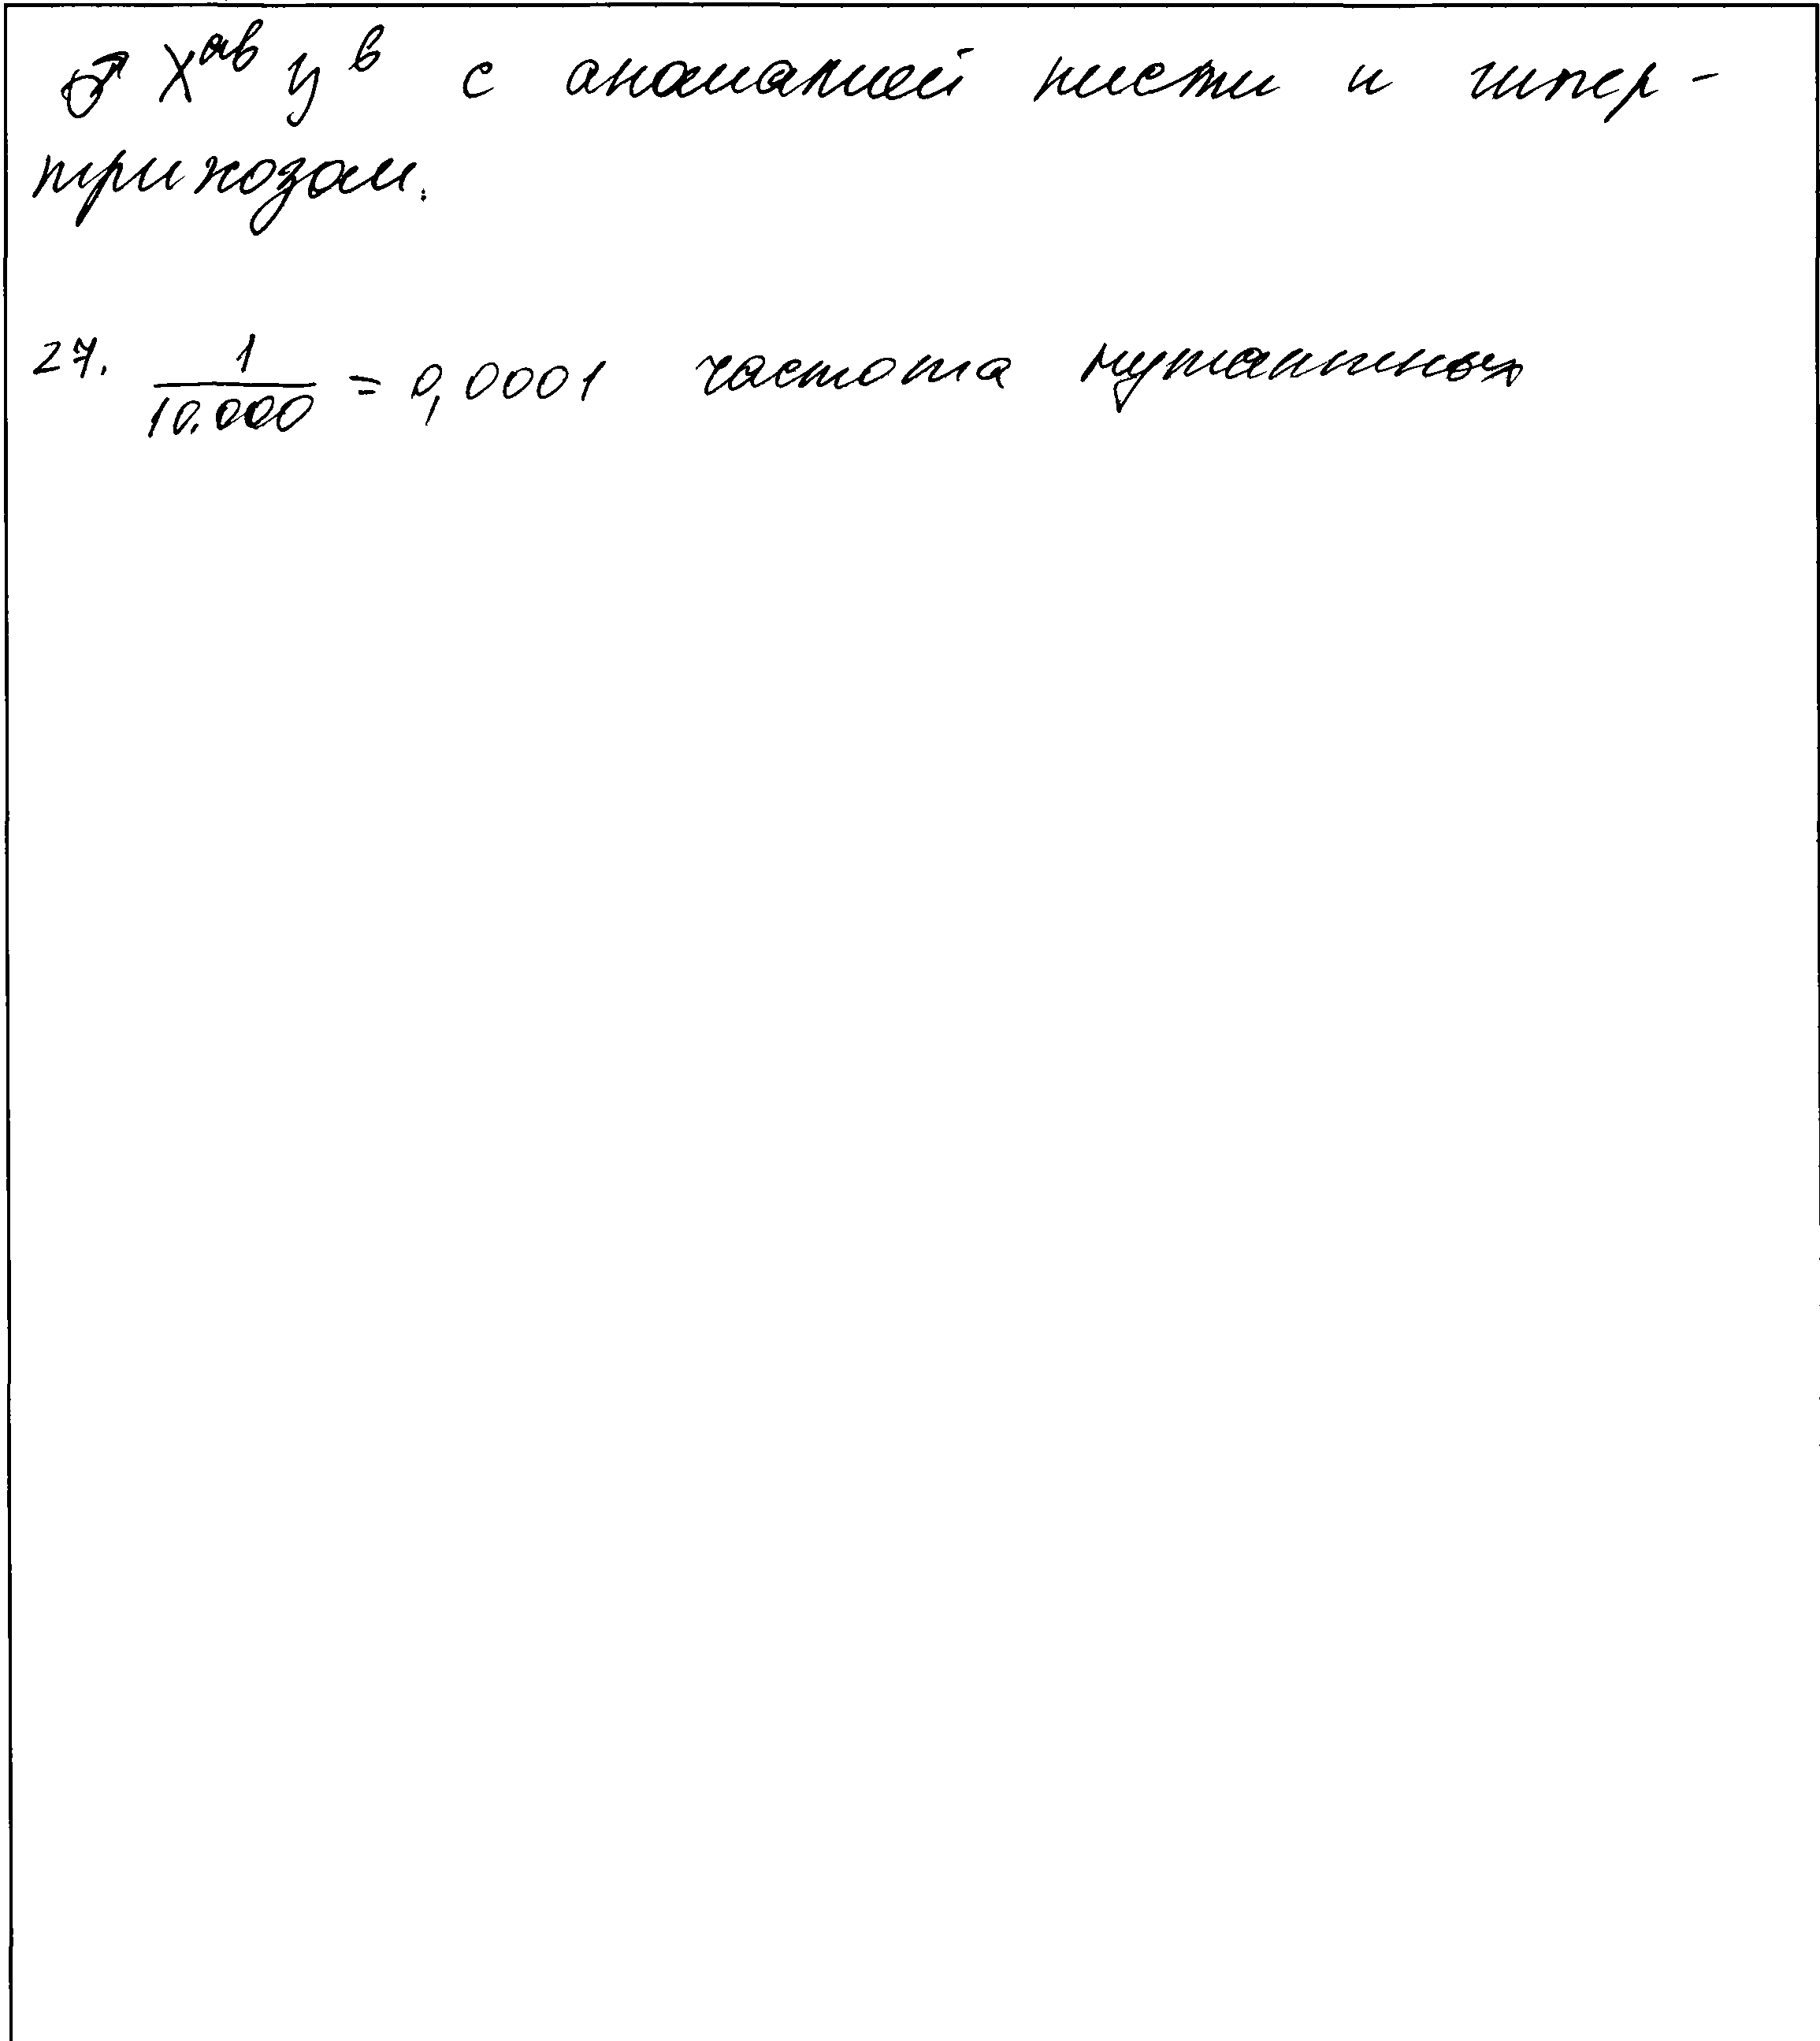 ♂ X^ab y^b с аномалией кисти и гипер-
трихозом.
27. 1/10.000 = 0,0001 частота мутантных